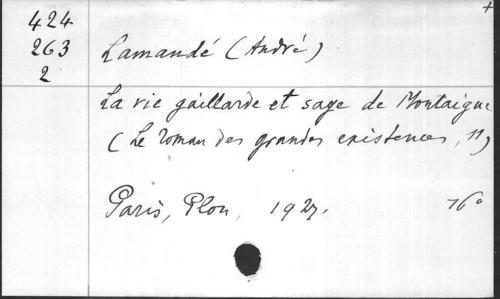 424
263
2
+
Lamandé (André)
La vie gaillarde et sage de Montaigne
(Le roman des grandes existences, 11)
Paris, Plon, 1927.
16°